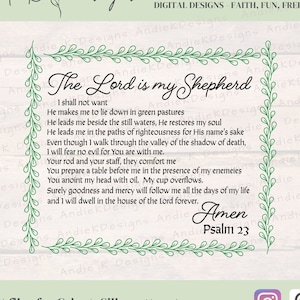 DIGITAL DESIGNS - FAITH, FUN, FREE
The Lord is my Shepherd
I shall not want
He makes me to lie down in green pastures
He leads me beside the still waters, He restores my soul
He leads me in the paths of righteousness for His name's sake
Even though I walk through the valley of the shadow of death,
I will fear no evil for You are with me.
Your rod and your staff, they comfort me
You prepare a table before me in the presence of my enemeies
You anoint my head with oil. My cup overflows.
Surely goodness and mercy will follow me all the days of my life
and I will dwell in the house of the Lord forever.
Amen
Psalm 23